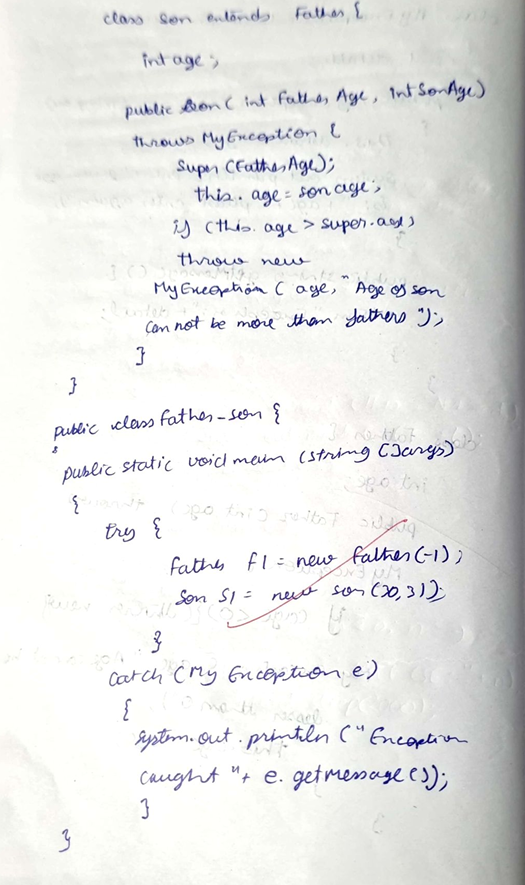 class Son extends Father {
int age;
public Son( int Father Age, int SonAge)
throws MyException {
Super (Father Age);
this. age = son age;
if (this. age > super. age)
throw new
MyException ( age, " Age of son
can not be more than fathers ");
}
}
public class Father_son {
public static void main (string []args)
{
try {
Father F1 = new Father(-1);
Son S1 = new son(20,31);
}
catch (My Exception e)
{
system.out.println (" Exception
caught "+ e. getMessage());
}
}